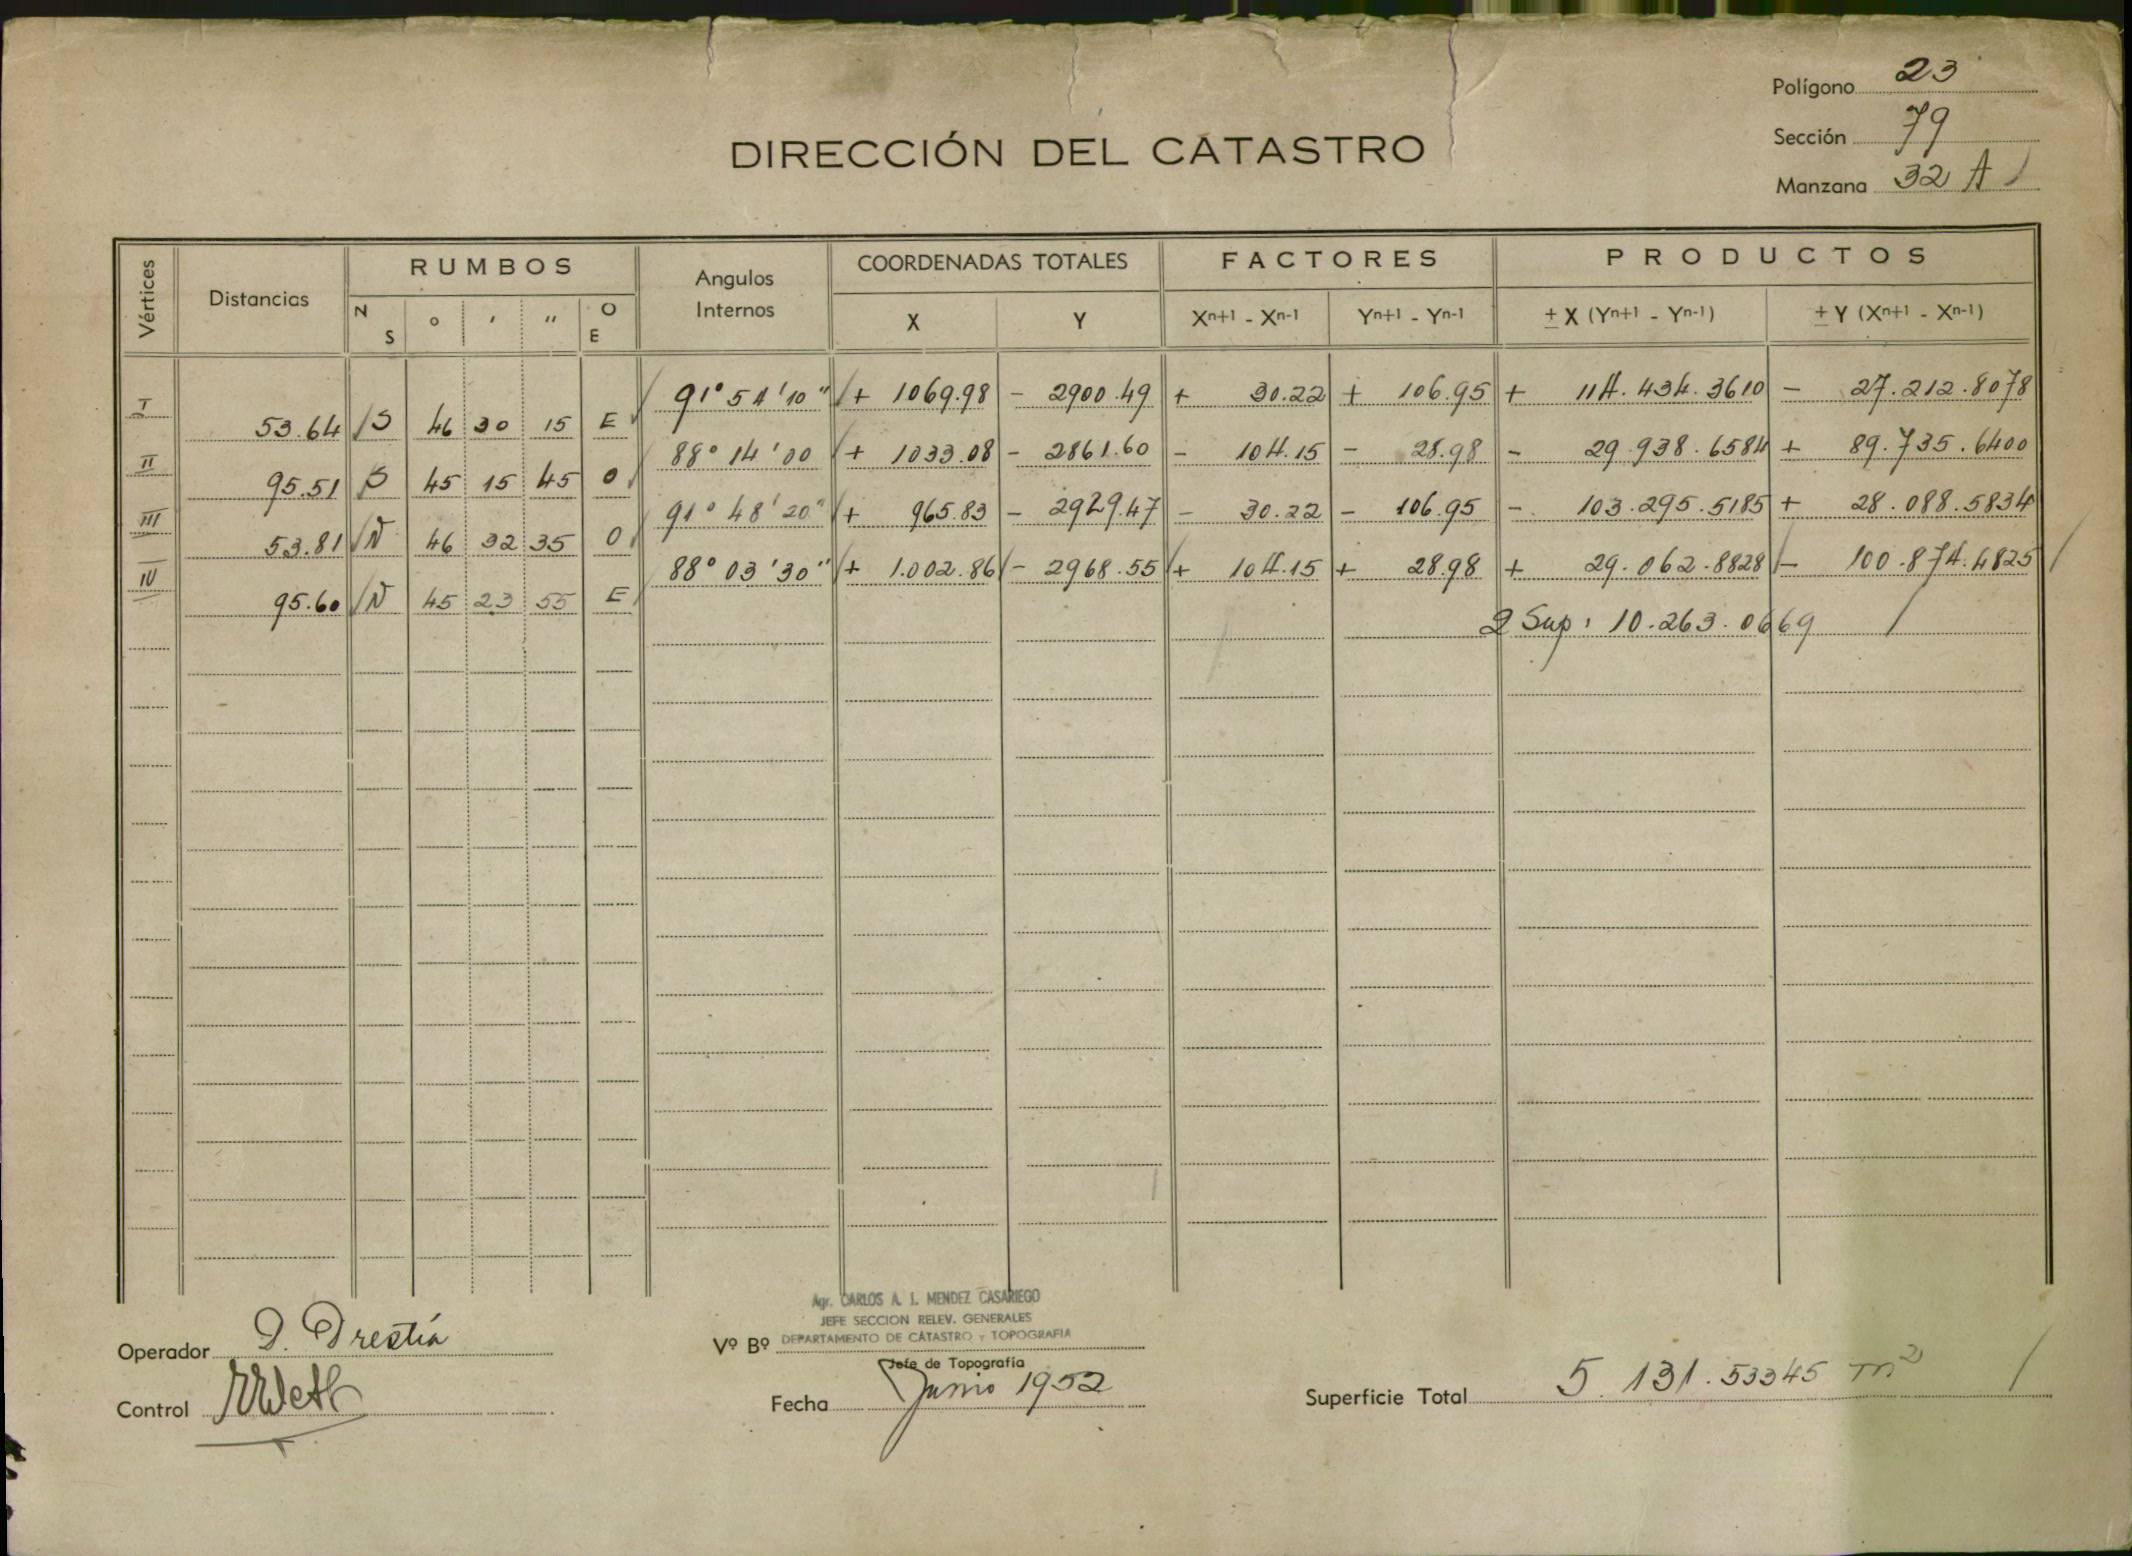 Polígono 23
Sección 79
Manzana 32 A
DIRECCIÓN DEL CATASTRO
Vértices Distancias RUMBOS Angulos Internos COORDENADAS TOTALES FACTORES PRODUCTOS
N S ° ' " O E X Y Xn+1 - Xn-1 Yn+1 - Yn-1 ± X (Yn+1 - Yn-1) ± Y (Xn+1 - Xn-1)
I 91° 51' 10" + 1069.98 - 2900.49 + 30.22 + 106.95 + 114.434.3610 - 27.212.8078
53.64 S 46 30 15 E
II 88° 14' 00 + 1033.08 - 2861.60 - 104.15 - 28.98 - 29.938.6584 + 89.735.6400
95.51 S 45 15 45 O
III 91° 48' 20" + 965.83 - 2929.47 - 30.22 - 106.95 - 103.295.5185 + 28.088.5834
53.81 N 46 32 35 O
IV 88° 03' 30" + 1.002.86 - 2968.55 + 104.15 + 28.98 + 29.062.8828 - 100.874.4825
95.60 N 45 23 55 E
2 Sup: 10.263.0669
Agr. CARLOS A. I. MENDEZ CASARIEGO
JEFE SECCION RELEV. GENERALES
DEPARTAMENTO DE CATASTRO y TOPOGRAFIA
Operador D. Drestía
Vº Bº
Jefe de Topografía
Control
Fecha Junio 1952
Superficie Total 5.131.53345 m2